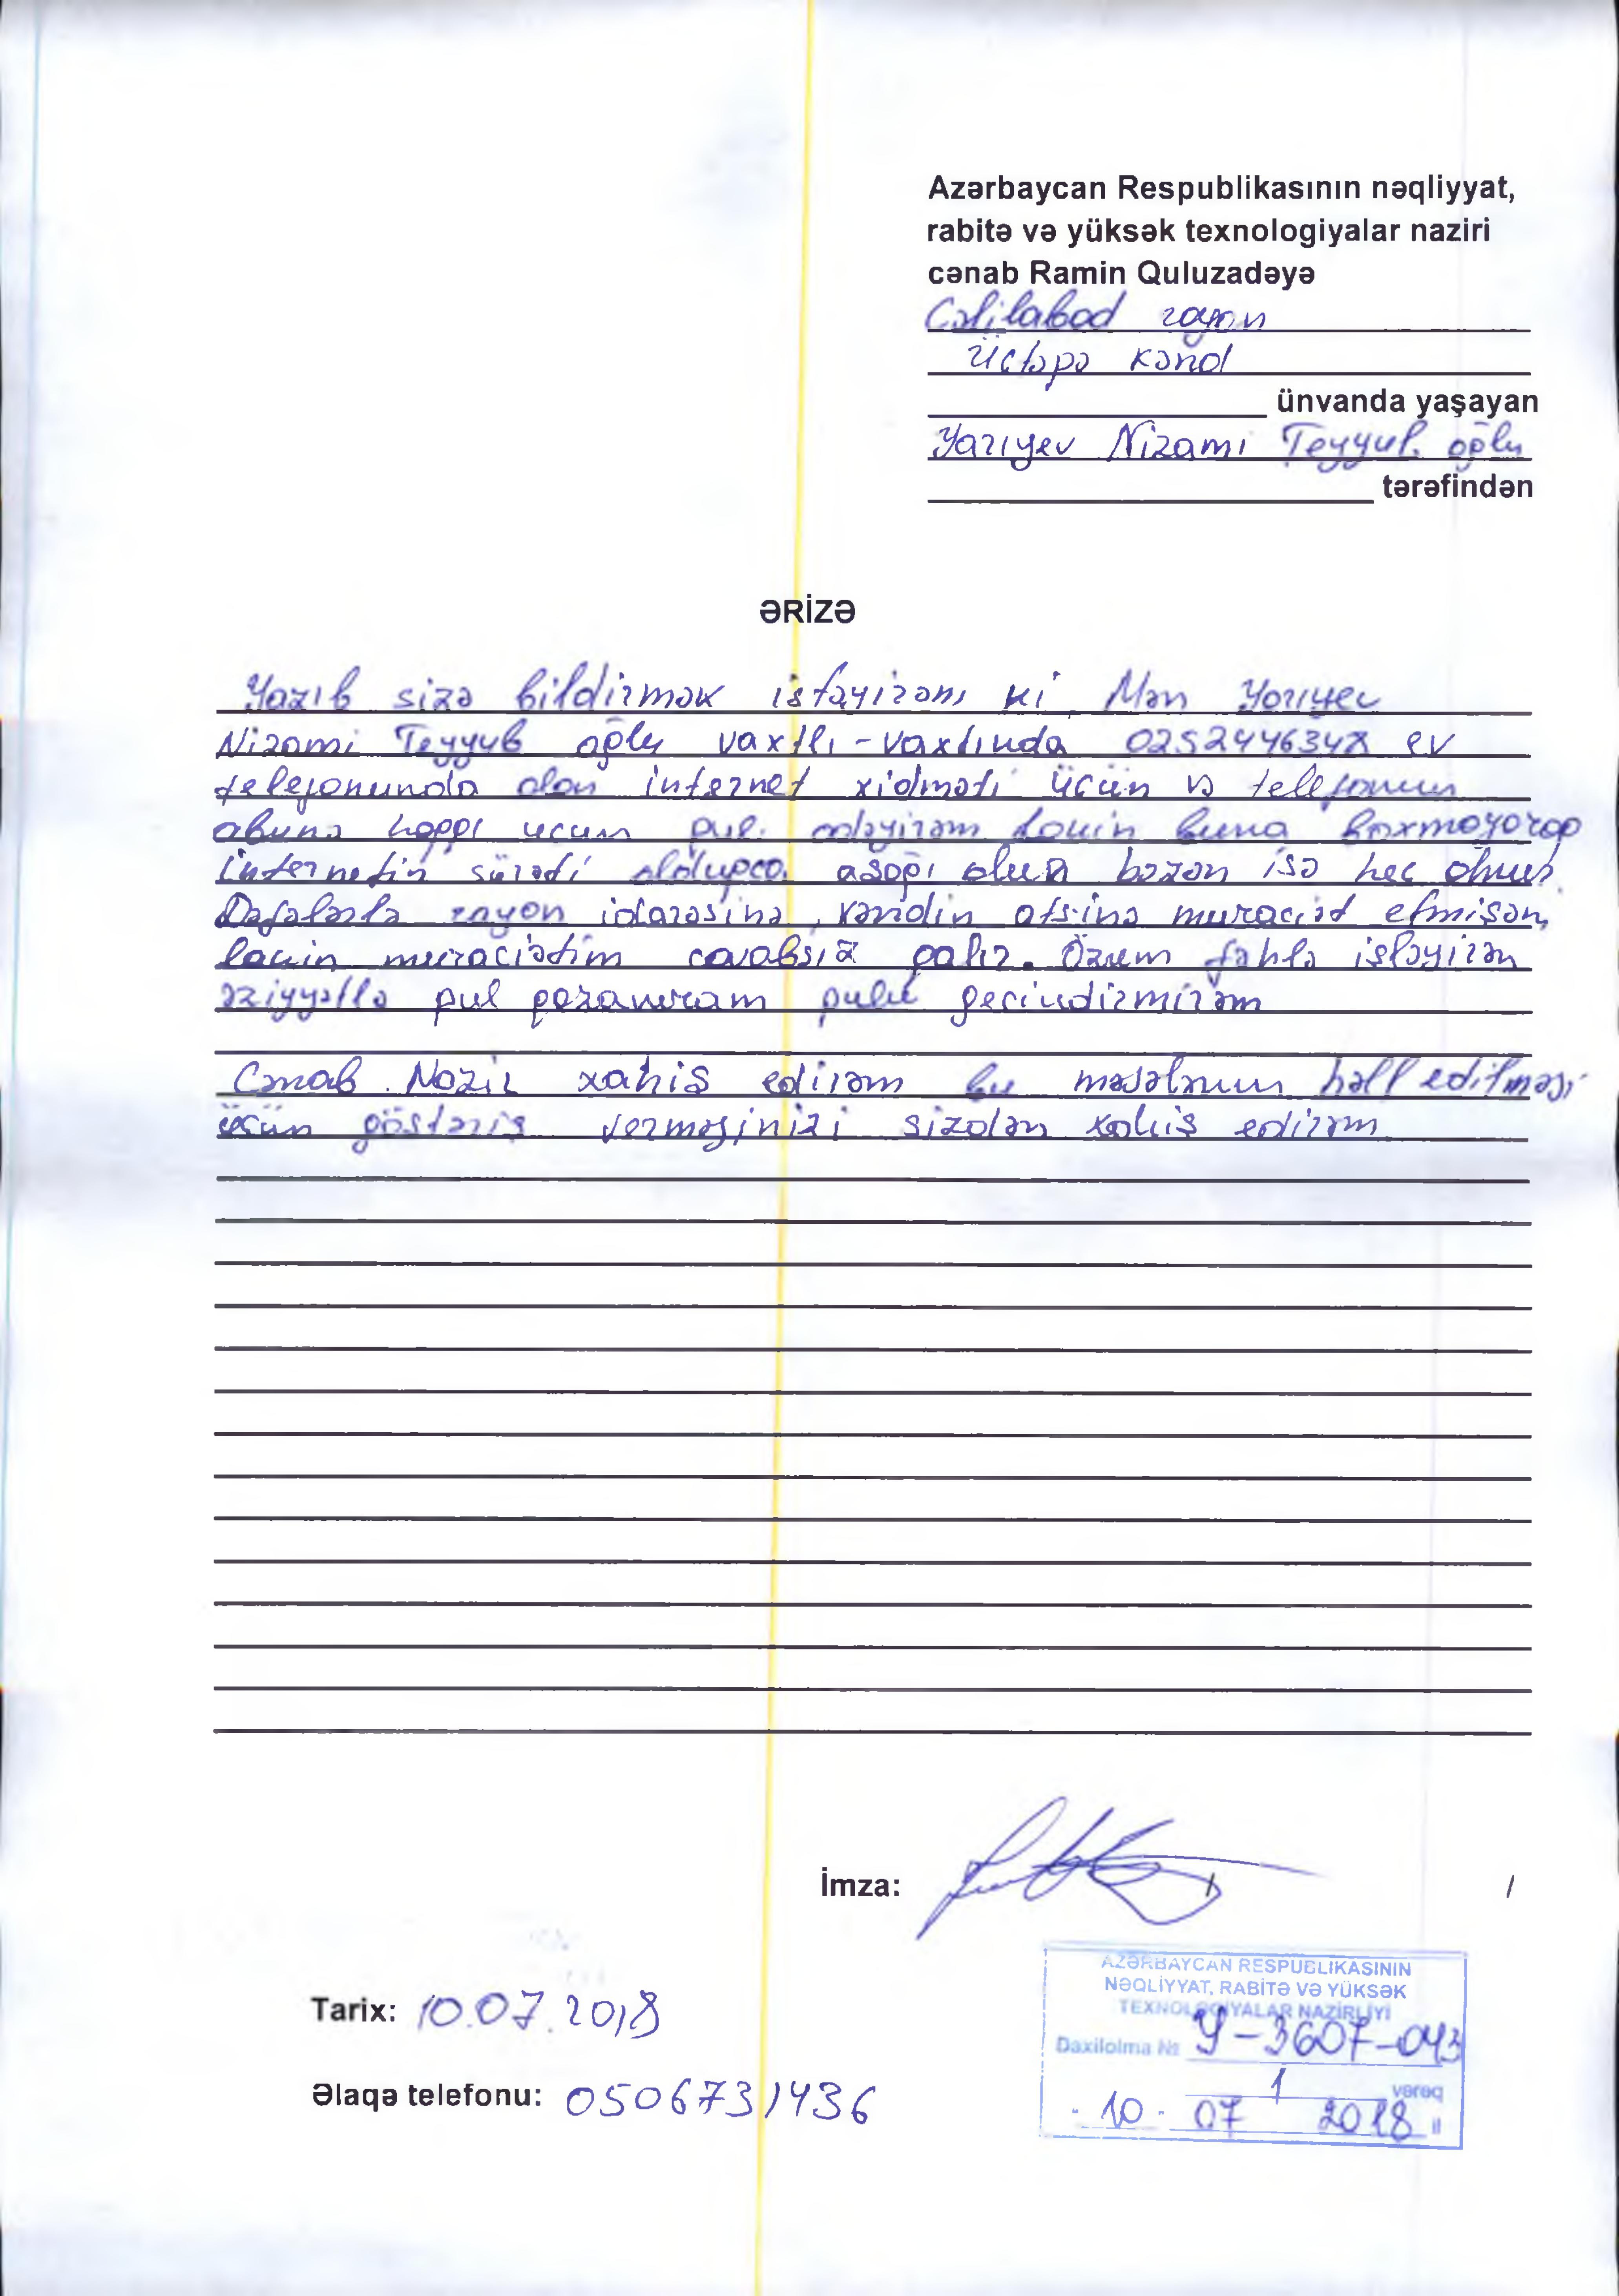 Azərbaycan Respublikasının nəqliyyat,
rabitə və yüksək texnologiyalar naziri
cənab Ramin Quluzadəyə
Cəlilabad rayon
Üctəpə kənd
ünvanda yaşayan
Yarıyev Nizami Teyyub oğlu
tərəfindən
ƏRİZƏ
Yazıb sizə bildirmək istəyirəm ki Mən Yarıyev
Nizami Teyyub oğlu vaxtlı-vaxtında ev
telefonunda olan internet xidməti üçün və telefonun
abunə haqqı ucun pul ödəyirəm Lakin buna baxmayaraq
internetin sürəti olduqca asağı olur bəzən isə hec olmur.
Dəfələrlə rayon idarəsinə, kəndin atsinə muraciət etmisəm,
lakin muraciətim cavabsız qalır. Özum fəhlə isləyirəm
əziyyətlə pul qazanıram pulu
Cənab Nazir xahis edirəm bu məsələnun həll edilməsi
üçün göstəris verməyinizi sizdən xahis edirəm
İmza:
AZƏRBAYCAN RESPUBLIKASININ
NƏQLİYYAT, RABİTƏ VƏ YÜKSƏK
TEXNOLOGİYALAR NAZİRLİYİ
Tarix: 10.07.2018
Daxilolma № Y-3607-043
1 vərəq
Əlaqə telefonu: 0506731436
10 07 2018 il